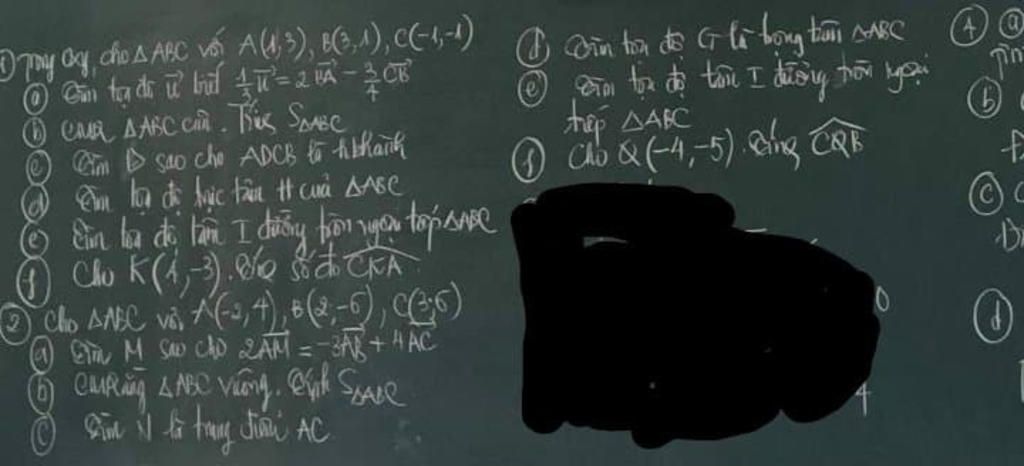 ① Trong Oxy, cho △ABC với A(1,3), B(3,1), C(-1,-1)
ⓐ Tìm tọa độ u⃗ biết 1/3 u⃗ = 2 BA⃗ - 3/4 CB⃗
ⓑ CMR △ABC cân. Tính S△ABC
ⓒ Tìm D sao cho ADCB là hbhành
ⓓ Tìm tọa độ trực tâm H của △ABC
ⓔ Tìm tọa độ tâm I đường tròn ngoại tiếp △ABC
ⓕ Cho K(1,-3). Tính số đo CKA
② Cho △ABC với A(-2,4), B(2,-6), C(3;6)
ⓐ Tìm M sao cho 2AM⃗ = -3AB⃗ + 4AC⃗
ⓑ CMRằng △ABC vuông. Tính S△ABC
ⓒ Tìm N là trung điểm AC
ⓓ Tìm tọa độ G là trọng tâm △ABC
ⓔ Tìm tọa độ tâm I đường tròn ngoại
tiếp △ABC
ⓕ Cho Q(-4,-5). Tính CQB
4
④ ⓐ
ⓑ
ⓒ
ⓓ